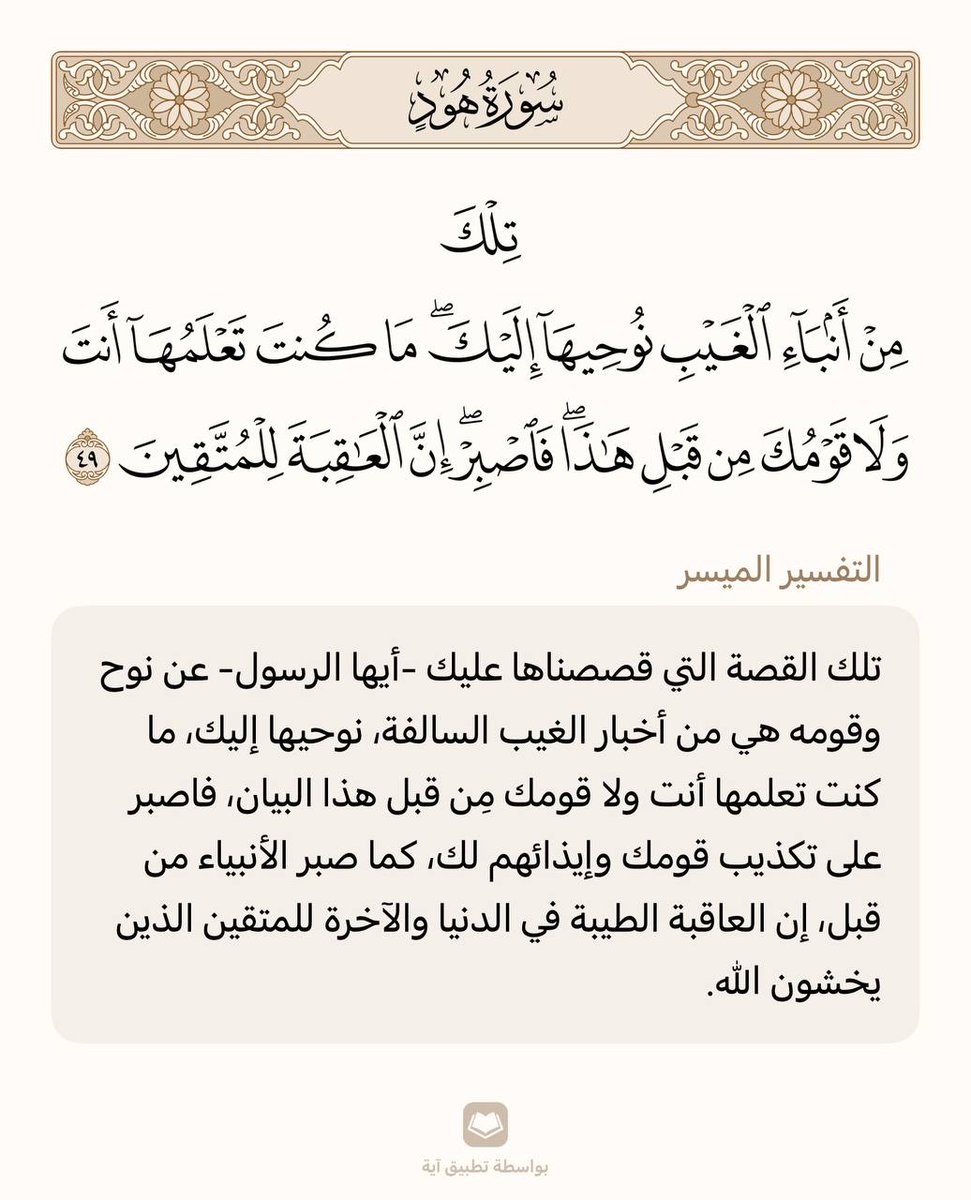 سُورَةُ هُودٍ
تِلۡكَ
مِنۡ أَنۢبَآءِ ٱلۡغَيۡبِ نُوحِيهَآ إِلَيۡكَۖ مَا كُنتَ تَعۡلَمُهَآ أَنتَ
وَلَا قَوۡمُكَ مِن قَبۡلِ هَٰذَاۖ فَٱصۡبِرۡۖ إِنَّ ٱلۡعَٰقِبَةَ لِلۡمُتَّقِينَ ٤٩
التفسير الميسر
تلك القصة التي قصصناها عليك -أيها الرسول- عن نوح
وقومه هي من أخبار الغيب السالفة، نوحيها إليك، ما
كنت تعلمها أنت ولا قومك مِن قبل هذا البيان، فاصبر
على تكذيب قومك وإيذائهم لك، كما صبر الأنبياء من
قبل، إن العاقبة الطيبة في الدنيا والآخرة للمتقين الذين
يخشون الله.
بواسطة تطبيق آية